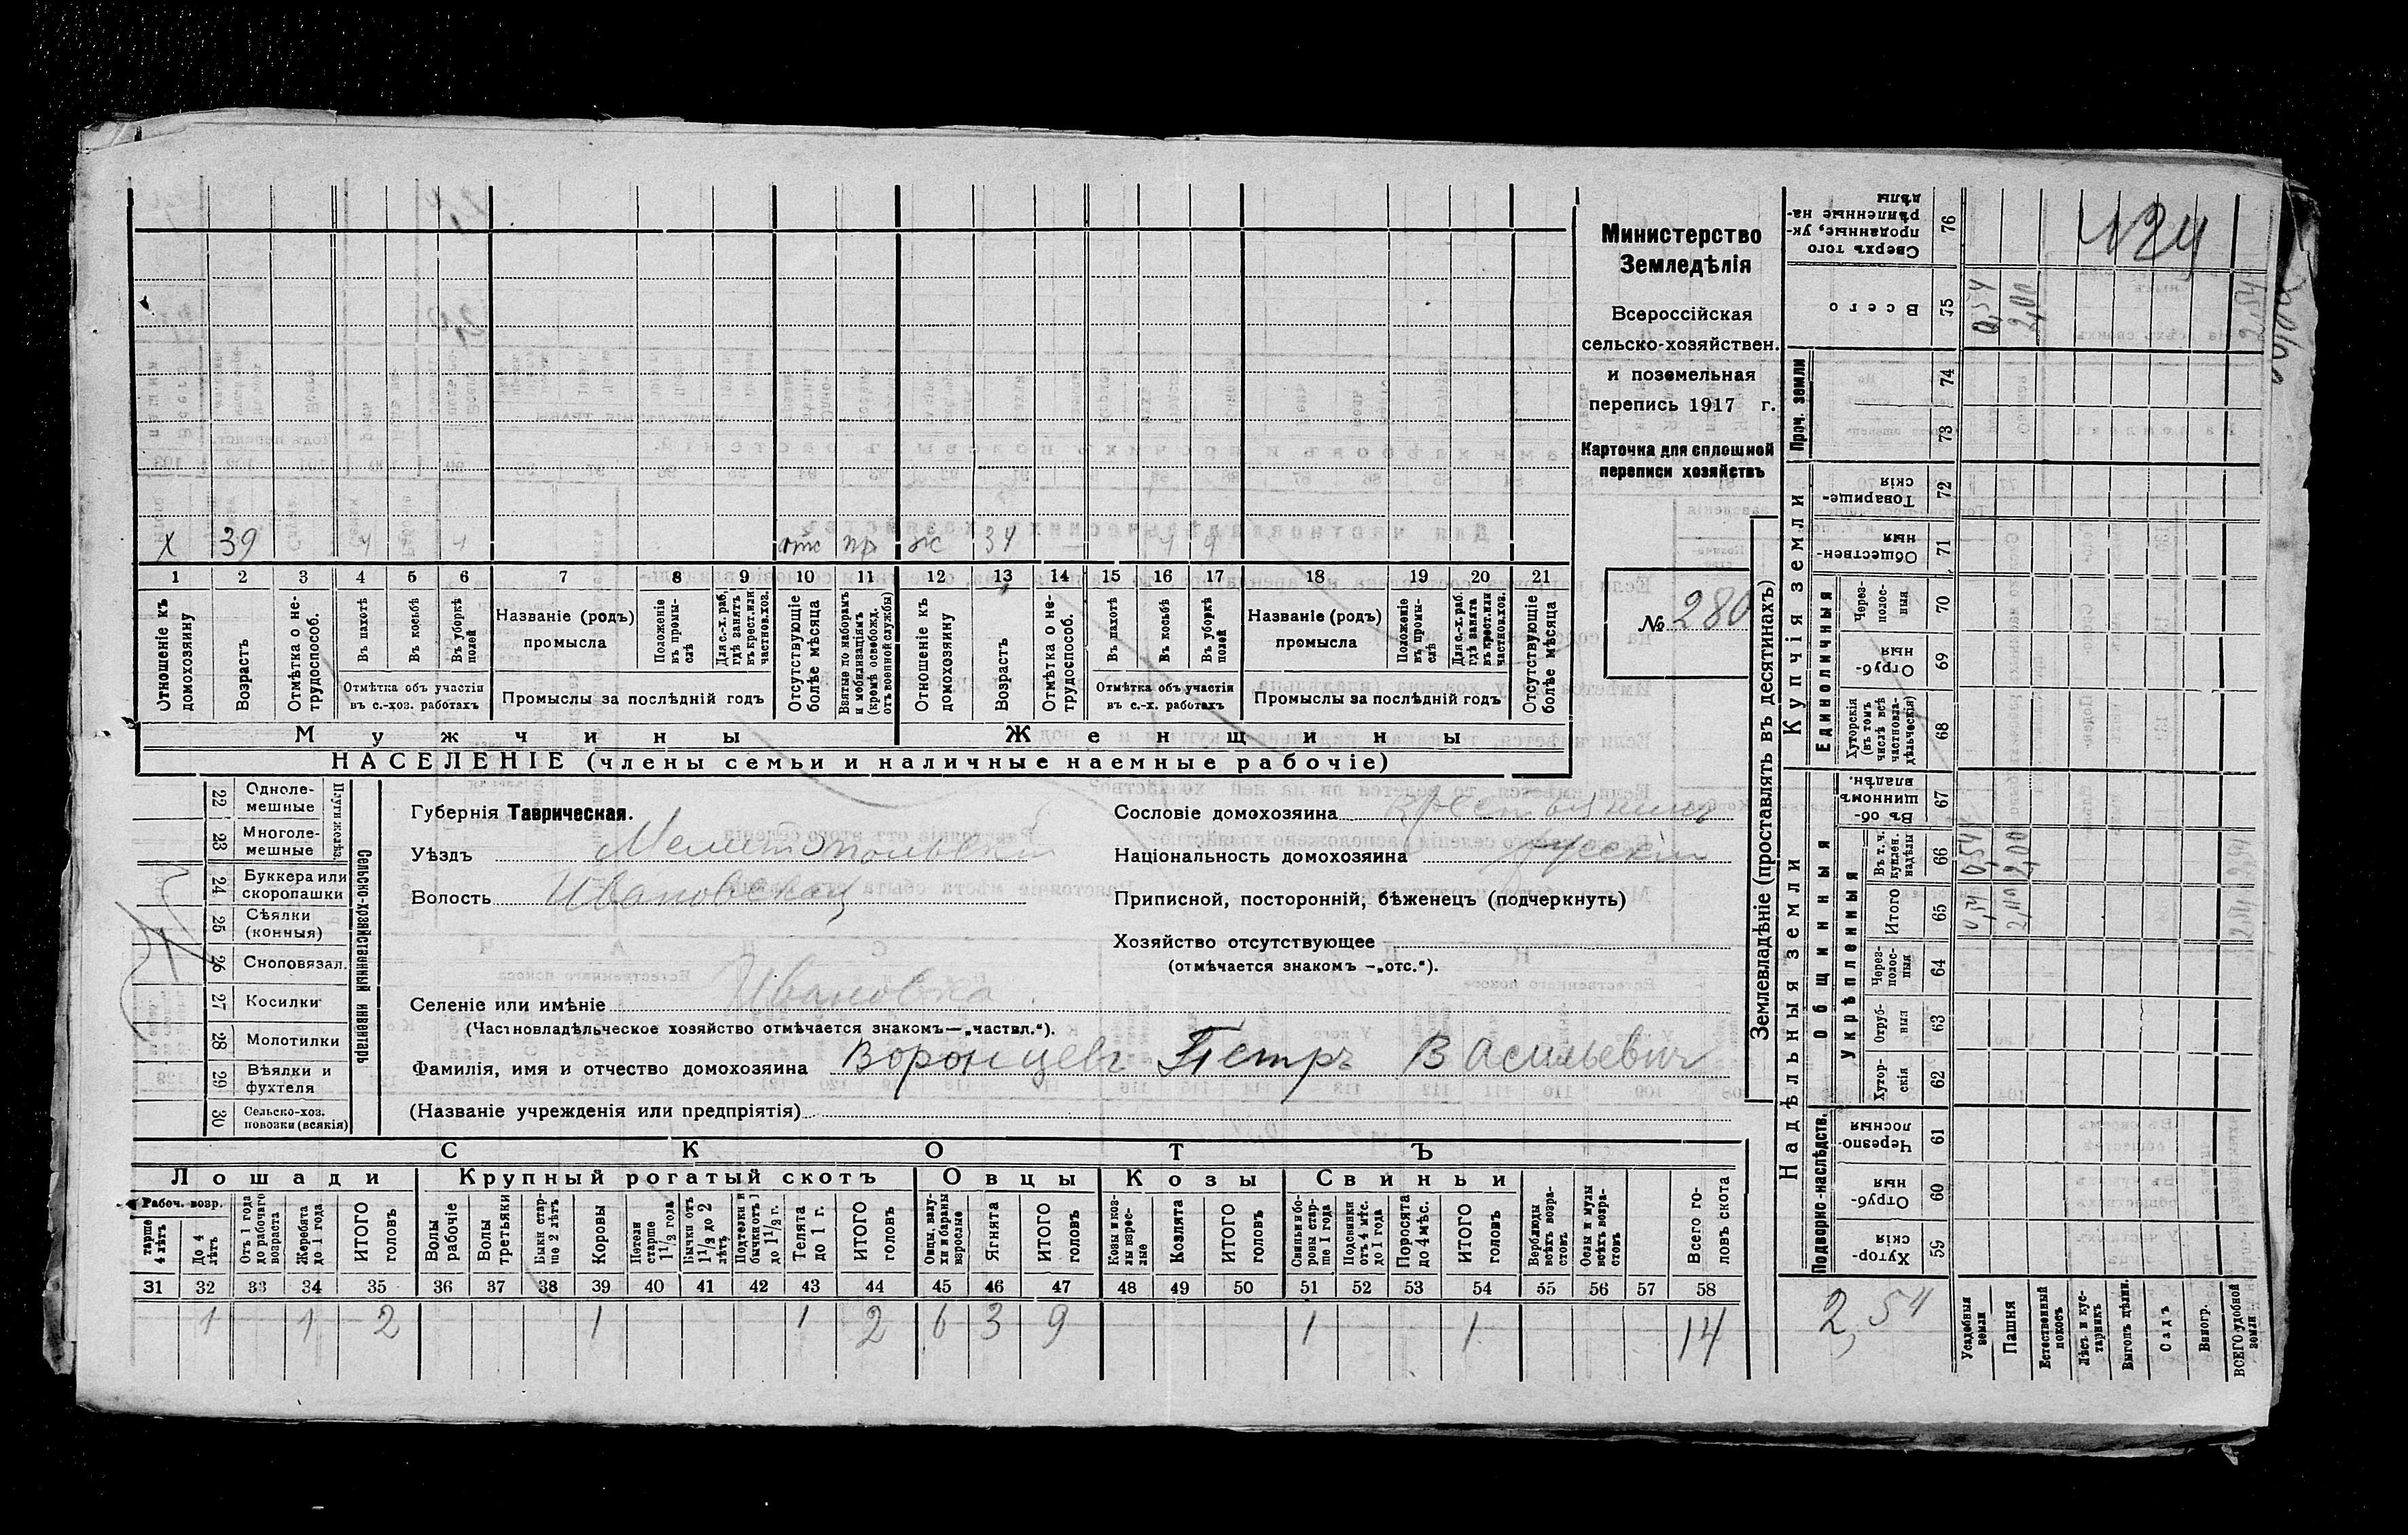 х 39 ч ч отс пр ж 34 ч ч
1 2 3 4 5 6 7 8 9 10 11 12 13 14 15 16 17 18 19 20 21
Отношеніе къ домохозяину
Возрастъ
Отмѣтка о не-трудоспособ.
Въ пахотѣ
Въ косьбѣ
Въ уборкѣ полей
Отмѣтка объ участіи
въ с.-хоз. работахъ
Названіе (родъ)
промысла
Положеніе въ промы-слѣ
Для с.-х. раб. гдѣ занятъ въ крест. или частновл. хоз.
Промыслы за послѣдній годъ
Отсутствующіе болѣе мѣсяца
Взятые по наборамъ и мобилизаціямъ (кромѣ освобожд. отъ военной службы)
Отношеніе къ домохозяину
Возрастъ
Отмѣтка о не-трудоспособ.
Въ пахотѣ
Въ косьбѣ
Въ уборкѣ полей
Отмѣтка объ участіи
въ с.-х. работахъ
Названіе (родъ)
промысла
Положеніе въ промы-слѣ
Для с.-х. раб. гдѣ занята въ крест. или частновл. хоз.
Промыслы за послѣдній годъ
Отсутствующіе болѣе мѣсяца
Мужчины Женщины
НАСЕЛЕНІЕ (члены семьи и наличные наемные рабочіе)
Министерство
Земледѣлія
Всероссійская
сельско-хозяйствен.
и поземельная
перепись 1917 г.
Карточка для сплошной
переписи хозяйствъ
№ 280
22 Одноле-мешные
23 Многоле-мешные
Плуги желѣз.
24 Буккера или скоропашки
25 Сѣялки (конныя)
26 Сноповязал.
27 Косилки
28 Молотилки
29 Вѣялки и фухтеля
30 Сельско-хоз. повозки (всякія)
Сельско-хозяйственный инвентарь
Губернія Таврическая.
Уѣздъ Мелитопольскій
Волость Ивановская
Селеніе или имѣніе Ивановка
(Частновладѣльческое хозяйство отмѣчается знакомъ—„частвл.“).
Фамилія, имя и отчество домохозяина Воронцевъ Петръ Васильевич
(Названіе учрежденія или предпріятія)
Сословіе домохозяина крестьянинъ
Національность домохозяина русскій
Приписной, посторонній, бѣженецъ (подчеркнуть)
Хозяйство отсутствующее
(отмѣчается знакомъ —„отс.“).
СКОТЪ
Лошади Крупный рогатый скотъ Овцы Козы Свиньи
Рабоч. возр.
старше 4 лѣтъ
До 4 лѣтъ
Отъ 1 года до рабочаго возраста
Жеребята до 1 года
ИТОГО головъ
Волы рабочіе
Волы третьяки
Быки стар-ше 2 лѣтъ
Коровы
Нетели старше 1 1/2 года
Бычки отъ 1 1/2 до 2 лѣтъ
Подтелки и бычки отъ 1 до 1 1/2 г.
Телята до 1 г.
ИТОГО головъ
Овцы, валу-хи и бараны взрослые
Ягнята
ИТОГО головъ
Козы и коз-лы взрос-лые
Козлята
ИТОГО головъ
Свиньи и бо-ровы стар-ше 1 года
Подсвинки отъ 4 мѣс. до 1 года
Поросята до 4 мѣс.
ИТОГО головъ
Верблюды всѣхъ возра-стовъ
Ослы и мулы всѣхъ возра-стовъ
Всего го-ловъ скота
31 32 33 34 35 36 37 38 39 40 41 42 43 44 45 46 47 48 49 50 51 52 53 54 55 56 57 58
1 1 2 1 1 2 6 3 9 1 1 14
Землевладѣніе (проставлять въ десятинахъ)
Надѣльныя земли Купчія земли Проч. земли
Подворно-наслѣдств.
Общинныя
Укрѣпленныя
Единоличныя
Сверхъ того проданные, ук-рѣпленные на-дѣлы 76
Всего 75
74
73
Товарище-скія 72
Обществен-ныя 71
Через-полос-ныя 70
Отруб-ныя 69
Хуторскія (въ томъ числѣ всѣ частновла-дѣльческія) 68
Въ об-щинномъ владѣн. 67
Въ т. ч. куплен. надѣлы 66
Итого 65
Через-полос-ныя 64
Отруб-ныя 63
Хутор-скія 62
Черезпо-лосныя 61
Отруб-ныя 60
Хутор-скія 59
124
0,54 2,00 2,54
0,54 2,00
0,54 2,00
2,54
Усадебныя земли
Пашня
Естественный покосъ
Лѣсъ и кус-тарникъ
Выгонъ цѣлин.
Садъ
Виногр.
ВСЕГО удобной земли